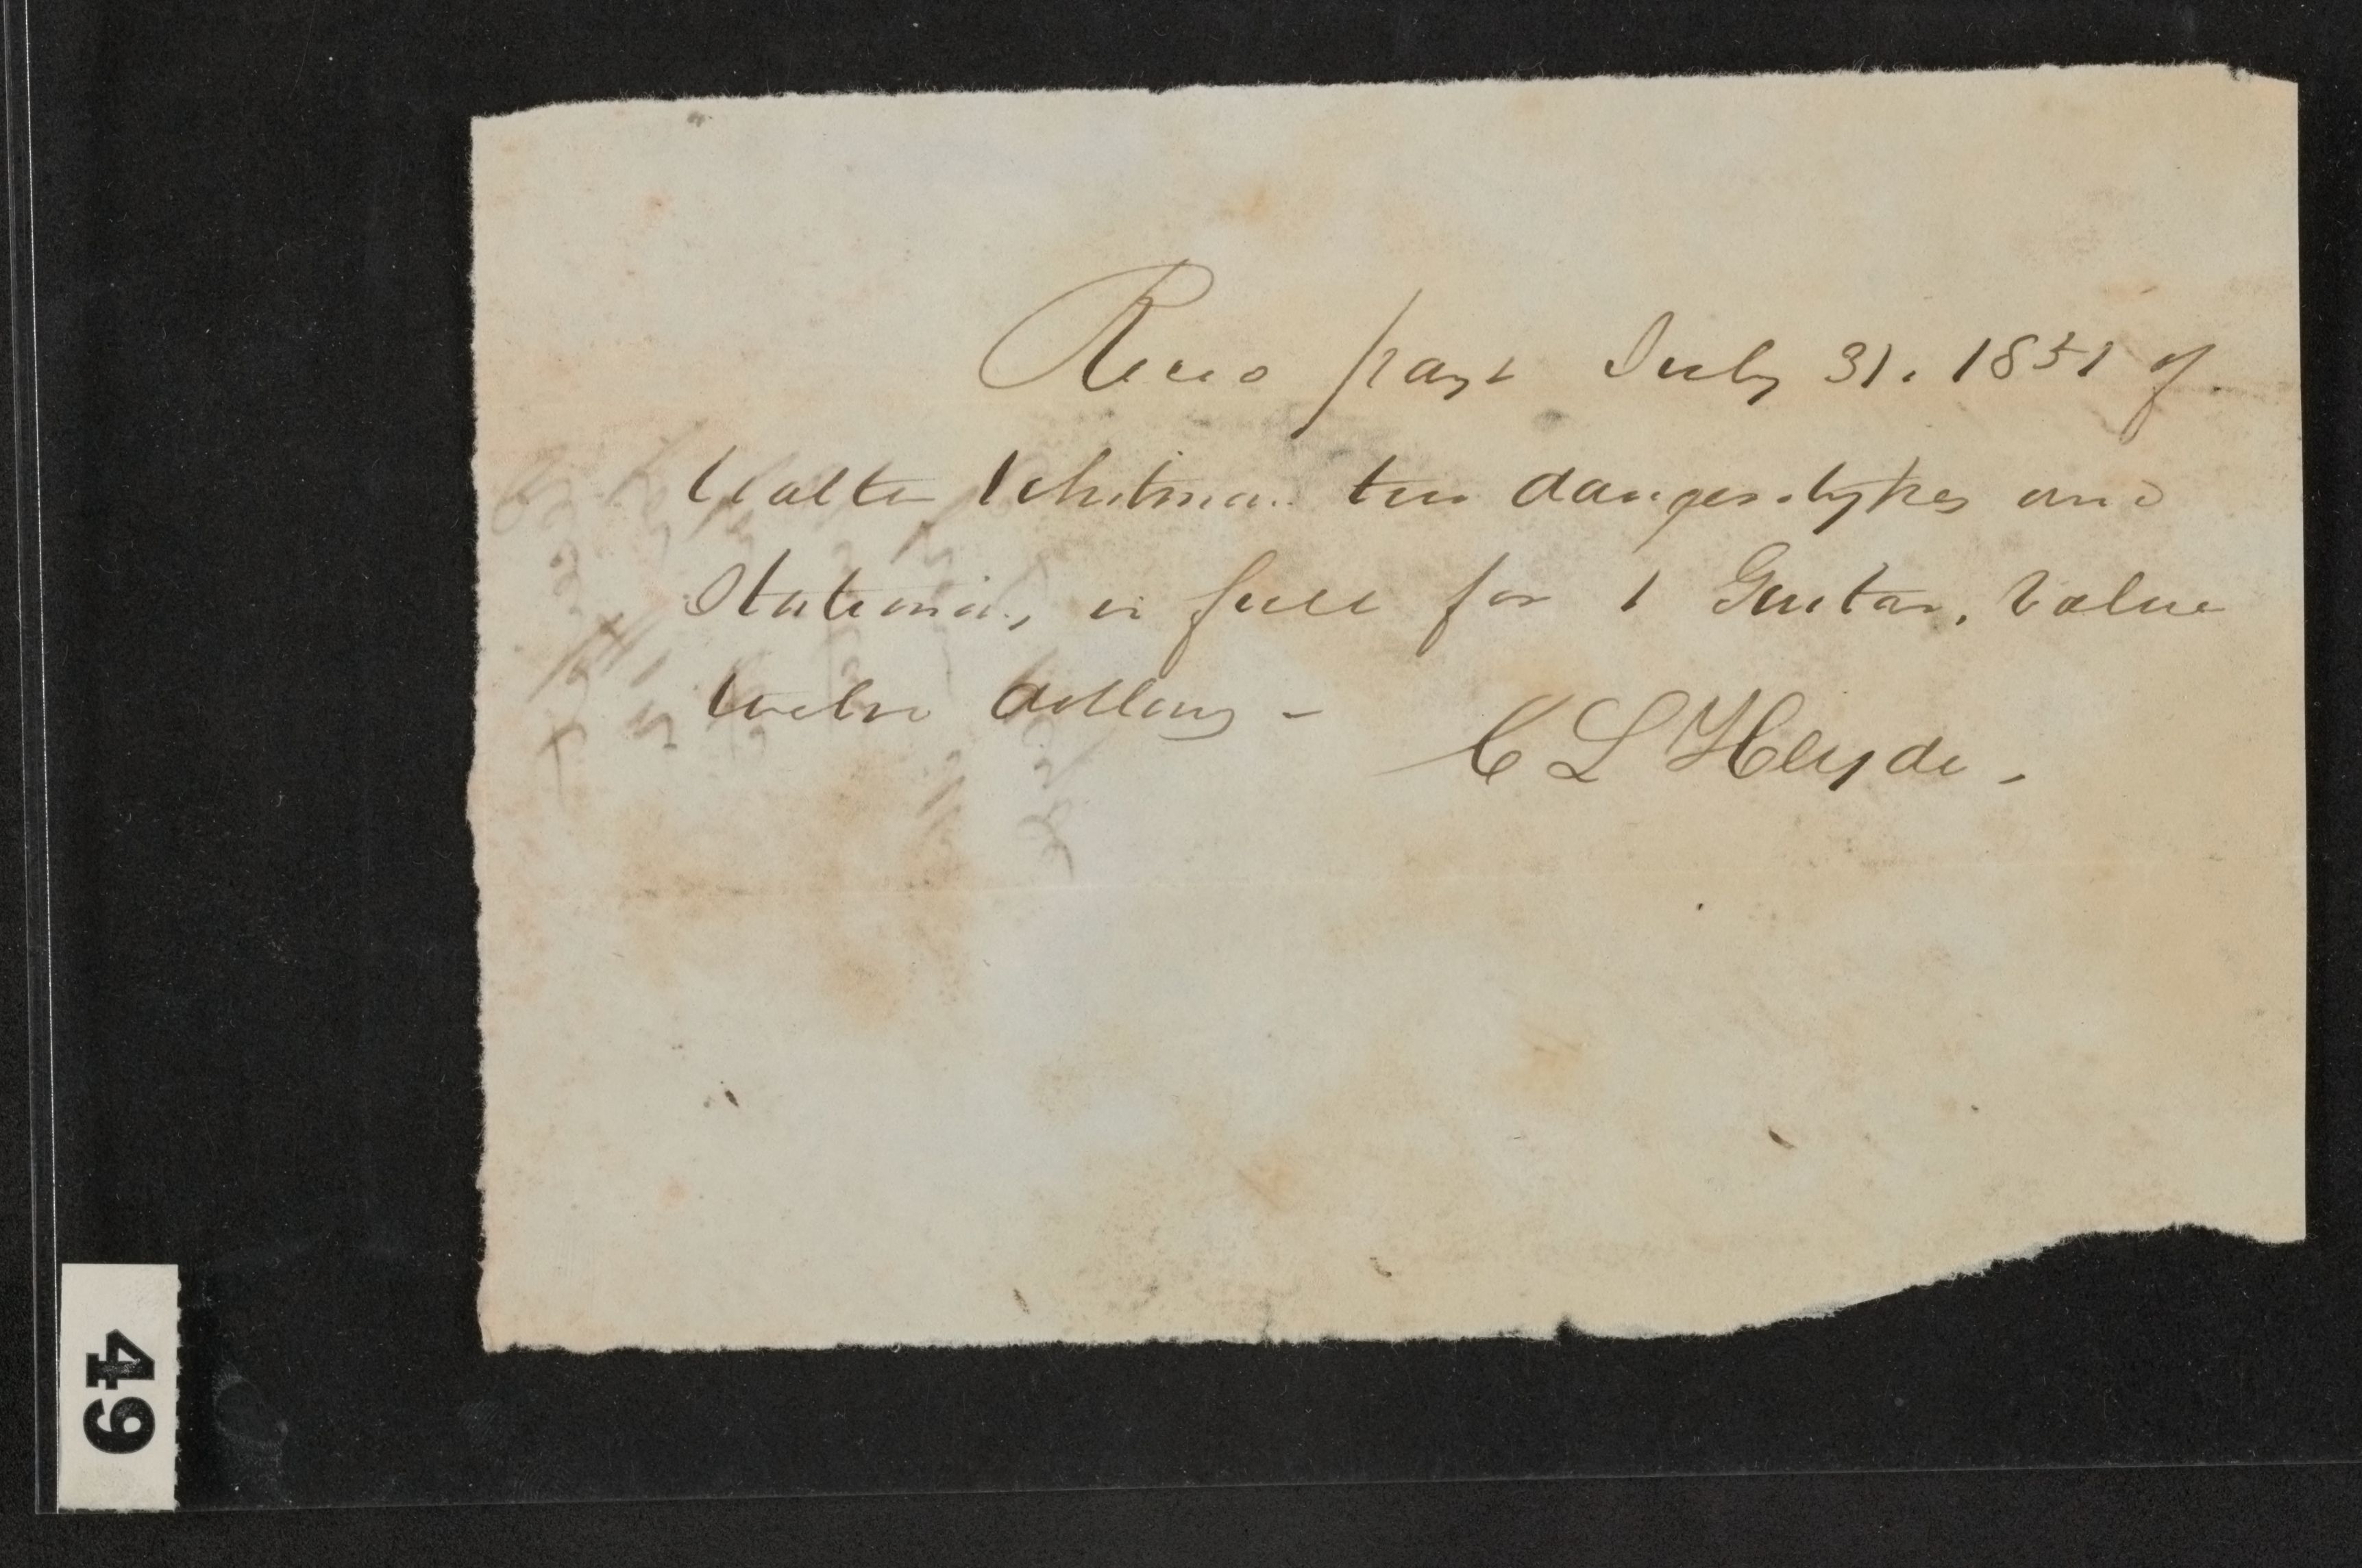 Recd payt July 31. 1851 of
Walter Whitman two daugerotypes and
Stationary, in full for 1 Guitar, Value
twelve dollars -
C L Heyde.
49